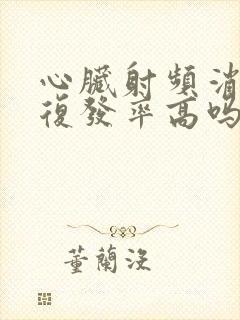 心臟射頻消
復發率高嗎
董蘭沒